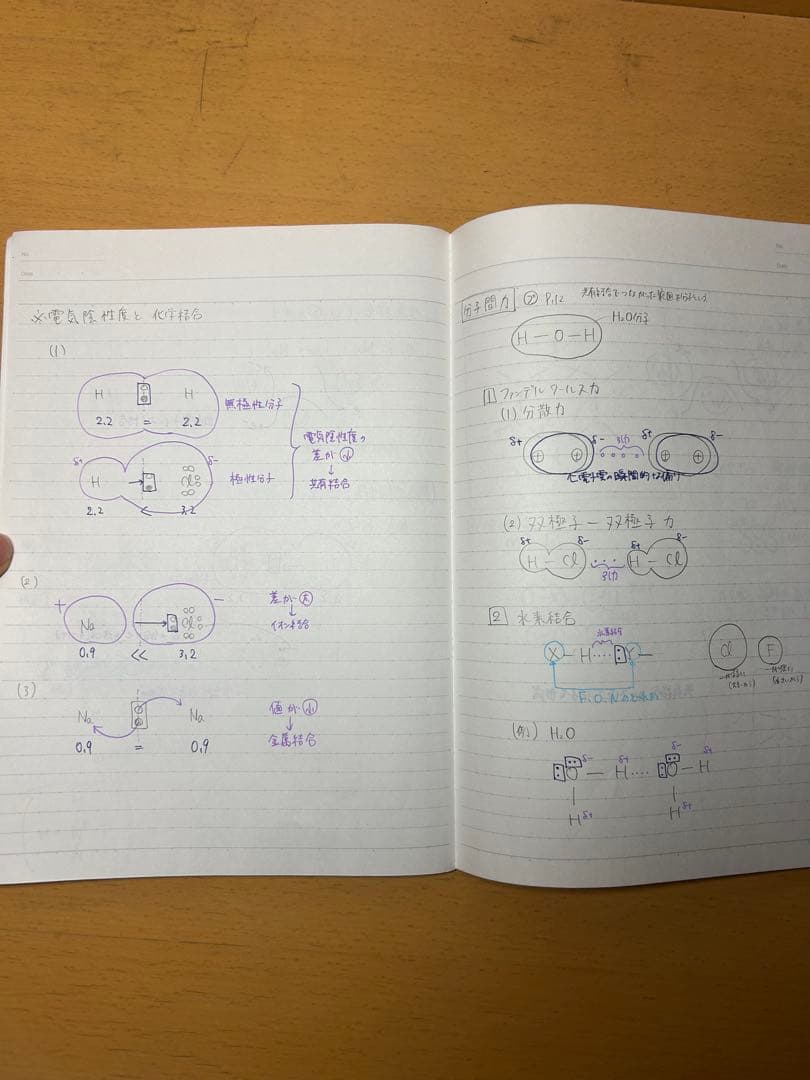 No.
Date
※電気陰性度と化学結合
(1)
H H
2.2 = 2.2
無極性分子
δ+ δ-
H → Cl
2.2 < 3.2
極性分子
電気陰性度の
差が小
↓
共有結合
(2)
+ -
Na → Cl
0.9 << 3.2
差が大
↓
イオン結合
(3)
Na Na
0.9 = 0.9
値が小
↓
金属結合
No.
Date
分子間力 P.12 共有結合でつながった範囲を分子という
H-O-H
H2O分子
1 ファンデルワールス力
(1) 分散力
δ+ δ- 引力 δ+ δ-
+ + + +
電子雲の瞬間的な偏り
(2) 双極子-双極子力
δ+ δ- δ+ δ-
H-Cl H-Cl
引力
2 水素結合
水素結合
X-H····:Y-
F,O,N
Cl F
(例) H2O
δ- δ+ δ- δ+
O-H····O-H
| |
Hδ+ Hδ+